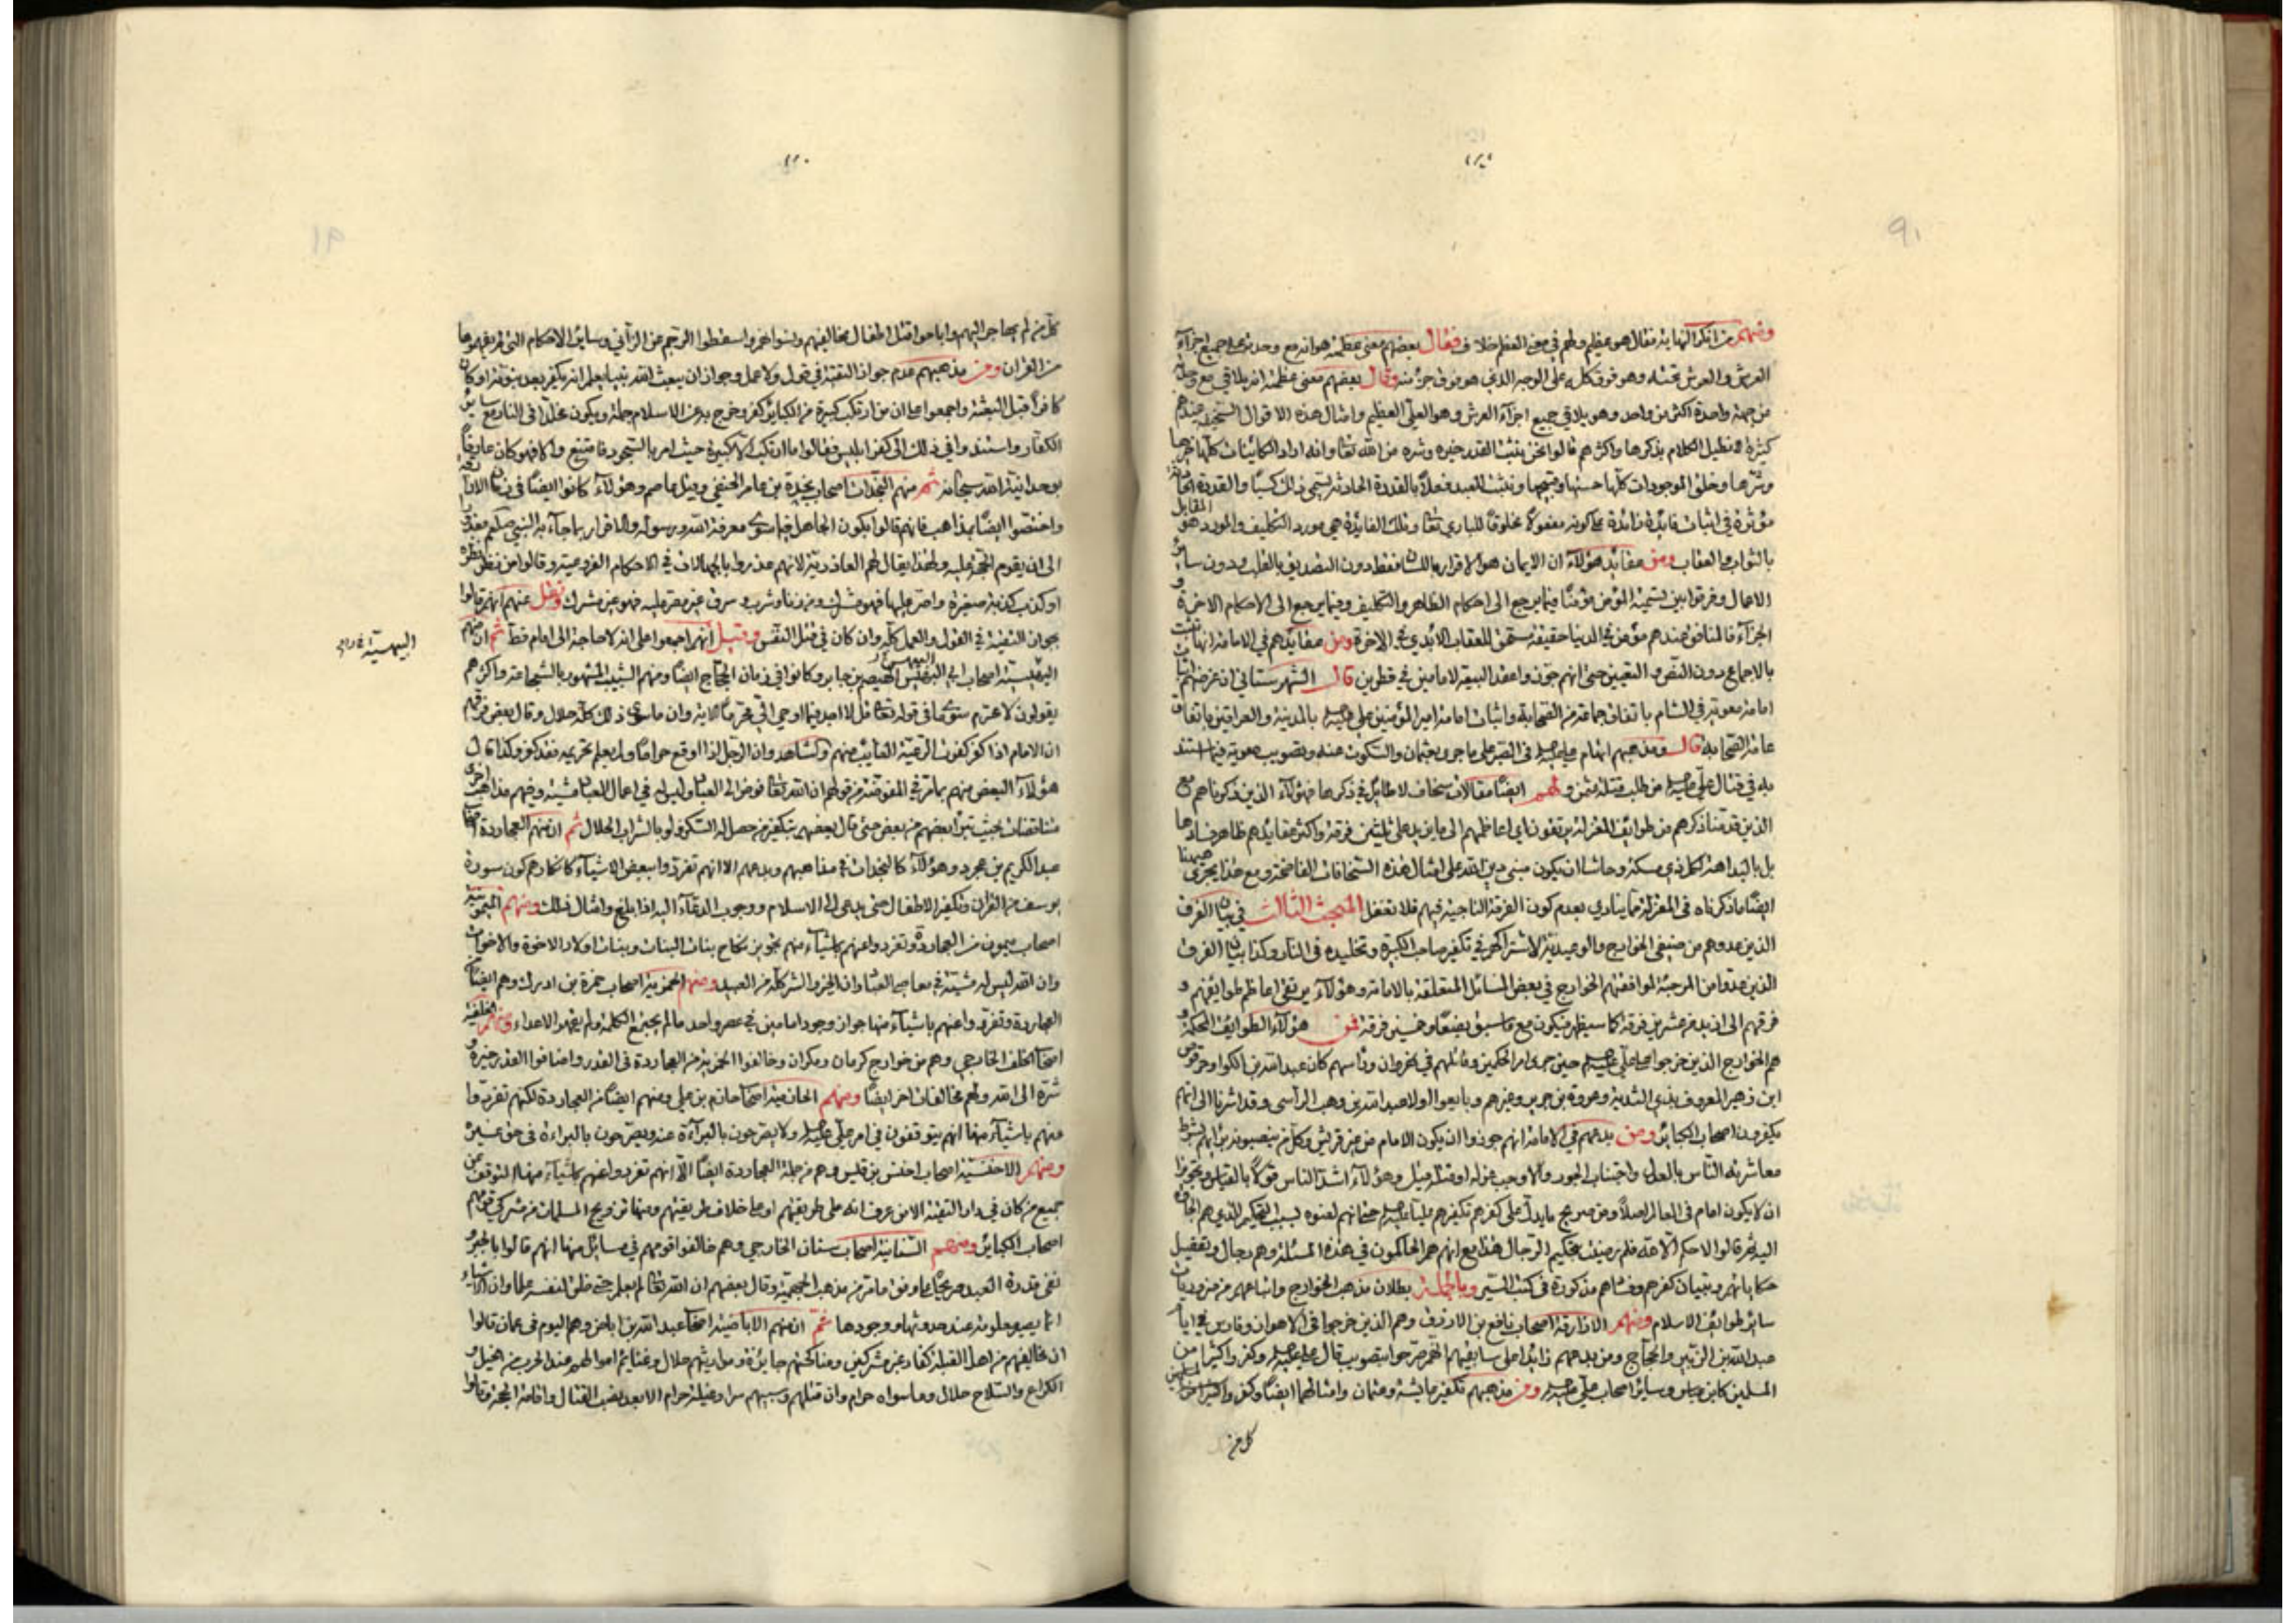 ومنهم من انكر النهاية فقال هو عظيم ولهم في معنى العظم خلاف فقال بعضهم معنى عظمته هو انه مع وحدته على جميع اجزاء
العرش والعرش تحته وهو فوق كله على الوجه الذي هو فوق جزء منه وقال بعضهم معنى عظمته انه يلاقي مع وحدته
من جهة واحدة اكثر من واحد وهو يلاقي جميع اجزاء العرش وهو العلي العظيم وامثال هذه الاقوال السخيفة عندهم
كثيرة لا نطيل الكلام بذكرها واكثرهم قالوا نحن نثبت القدر خيره وشره من الله تعالى وانه اراد الكائنات كلها خيرها
وشرها وخلق الموجودات كلها حسنها وقبيحها ونثبت للعبد فعلا بالقدرة الحادثة يسمى ذلك كسبا والقدرة الحادثة
مؤثرة في اثبات فائدة زائدة على كونه مفعولا مخلوقا للباري تعالى وتلك الفائدة هي مورد التكليف والمورد هو المقابل
بالثواب والعقاب ومن عقائد هؤلاء ان الايمان هو الاقرار باللسان فقط دون التصديق بالقلب ودون سائر
الاعمال وفرقوا بين تسمية المؤمن مؤمنا فيما يرجع الى احكام الظاهر والتكليف وفيما يرجع الى الاحكام الاخرة و
الجزاء فالمنافق عندهم مؤمن في الدنيا حقيقة مستحق للعقاب الابدي في الاخرة ومن عقائدهم في الامامة انها تثبت
بالاجماع دون النص والتعيين حتى انهم جوزوا عقد البيعة لامامين في قطرين قال الشهرستاني ان غرضهم اثبات
امامة معوية في الشام باتفاق جماعة من الصحابة واثبات امامة امير المؤمنين علي عليه السلام بالمدينة والعراقين باتفاق
عامة الصحابة قال ومذهبهم اتهام علي عليه السلام في الصبر على ما جرى بعثمان والسكوت عنه وتصويب معوية فيما استند
به في قتال علي عليه السلام من طلب قتلة عثمن ولهم ايضا مقالات سخاف لا طائل في ذكرها فهؤلاء الذين ذكرناهم مع
الذين قدمنا ذكرهم من طوائف المعتزلة يرتقون اي اعاظمهم الى ما يزيد على ثلثين فرقة واكثر عقايدهم ظاهر فسادها
بل بالبداهة لكل ذي مسكة وحاشا ان يكون مبنى دين الله على امثال هذه السخافات الفاضحة ومع هذا يجرى هيهنا
ايضا ما ذكرناه في المعتزلة مما ينادي بعدم كون الفرقة الناجية فيهم فلا تغفل المبحث الثالث في بيان الفرق
الذين عدوهم من صنفي الخوارج والوعيدية لاشتراكهم في تكفير صاحب الكبيرة وتخليده في النار وكذا بيان الفرق
الذين عدوا من المرجئة لموافقتهم الخوارج في بعض المسائل المتعلقة بالامامة وهؤلاء يرتقي اعاظم طوايفهم و
فرقهم الى ازيد من عشرين فرقة كما سيظهر فيكون مع ما سبق بضعا وخمسين فرقة فمن هؤلاء الطوايف المحكمة و
هم الخوارج الذين خرجوا على علي عليه السلام حين جرى امر الحكمين وقاتلهم في نهروان ورأسهم كان عبد الله بن الكوا وحرقوص
ابن زهير المعروف بذي الثدية وعروة بن جرير وغيرهم وبايعوا اولا عبد الله بن وهب الراسي وقد اشرنا الى انهم
يكفرون اصحاب الكبائر ومن بدعهم في الامامة انهم جوزوا ان يكون الامام من غير قريش وكل من ينصبونه برأيهم بشرط
معاشرته الناس بالعدل واجتناب الجور والا وجب عزله او قتله وقيل وهؤلاء اشد الناس قولا بالقياس وتجوزوا
ان لا يكون امام في العالم اصلا ومن صريح ما يدل على كفرهم تكفيرهم عليا عليه السلام حتى انهم لعنوه بسبب التحكيم الذي هم الجاؤه
اليه ثم قالوا لا حكم الا لله فلم رضيت بتحكيم الرجال هذا مع انهم هم الحاكمون في هذه المسئلة وهم رجال وتفصيل
حكاياتهم وتبيان كفرهم وفسادهم مذكورة في كتب السير وبالجملة بطلان مذهب الخوارج واتباعهم من ضروريات
سائر طوائف الاسلام ومنهم الازارقة اصحاب نافع بن الازرق وهم الذين خرجوا في الاهواز وفارس في ايام
عبد الله بن الزبير والحجاج ومن بدعهم زائدا على سابقيهم انهم صرحوا بتصويب قاتل علي عليه السلام وكفروا كثيرا من
المسلمين كابن عباس وسائر اصحاب علي عليه السلام ومن مذهبهم تكفير عايشة وعثمان وامثالهما ايضا وكفروا كثيرا من المسلمين
كل من
كل من لم يهاجر اليهم واباحوا قتل اطفال مخالفيهم ونسوانهم واسقطوا الرجم عن الزاني وساير الاحكام التي لم يفهموها
من القران ومن مذهبهم عدم جواز التقية في قول ولا عمل وجواز ان يبعث الله نبيا يعلم انه يكفر بعد نبوته او كان
كافرا قبل البعثة واجمعوا على ان من ارتكب كبيرة من الكبائر كفر وخرج به عن الاسلام جملة ويكون مخلدا في النار مع سائر
الكفار واستندوا في ذلك الى كفر ابليس فقالوا ما ارتكب الا كبيرة حيث امر بالسجود فامتنع والا فهو كان عارفا
بوحدانية الله سبحانه ثم منهم النجدات اصحاب نجدة بن عامر الحنفي وقيل عاصم وهؤلاء كانوا ايضا في زمان الازارقة
واختصوا ايضا بمذاهب فانهم قالوا بكون الجاهل فيما سوى معرفة الله ورسوله والاقرار بما جاء به النبي صلعم معذورا
الى ان يقوم الحجة عليه ولهذا يقال لهم العاذرية لانهم عذروا بالجهالات في الاحكام الفرعية وقالوا من نظر نظرة
او كذب كذبة صغيرة واصر عليها فهو مشرك ومن زنا وشرب وسرق غير مصر عليه فهو غير مشرك ونقل عنهم انهم قالوا
بجواز التقية في القول والعمل كله وان كان في قتل النفس وقيل انهم اجمعوا على انه لا حاجة الى امام قط ثم ان منهم
البيهسية اصحاب ابي البيهس الهيصم بن جابر وكانوا في زمان الحجاج ايضا ومنهم الشبيب المشهور بالشجاعة واكثرهم
يقولون لا محرم سوى ما في قوله تعالى قل لا اجد فيما اوحي الي محرما الاية وان ما سوى ذلك كله حلال وقال بعض فرقهم
ان الامام اذا كفر كفرت الرعية الغايب منهم والشاهد وان الرجل اذا وقع حراما ولم يعلم تحريمه فقد كفر وكذا قال
هؤلاء البعض منهم بما مر في المفوضة من قولهم ان الله تعالى فوض الى العباد وليس له في اعمال العباد مشية وفيهم مذاهب اخرى
متناقضات بحيث تبرأ بعضهم من بعض حتى قال بعضهم بتكفير من حصل له السكر ولو بالشراب الحلال ثم ان منهم العجاردة اصحاب
عبد الكريم بن عجرد وهؤلاء كالنجدات في مذاهبهم وبدعهم الا انهم تفردوا ببعض الاشياء كانكارهم كون سورة
يوسف من القران وتكفير الاطفال حتى يدعى الى الاسلام ووجوب الدعاء اليه اذا بلغ وامثال ذلك ومنهم الميمونية
اصحاب ميمون من العجاردة وتفرد واعنهم باشياء منهم تجويز نكاح بنات البنات وبنات اولاد الاخوة والاخوات
وان الله ليس له مشية في معاصي العباد وان الخير والشر كله من العبيد ومنهم الحمزية اصحاب حمزة بن ادرك وهم ايضا من
العجاردة وتفردوا عنهم باشياء منها جواز وجود امامين في عصر واحد ما لم يجتمع الكلمة ولم يقهر الاعداء ومنهم الخلفية
اصحاب الخلف الخارجي وهم من خوارج كرمان ومكران وخالفوا الحمزية من العجاردة في القدر واضافوا القدر خيره و
شره الى الله ولهم مخالفات اخر ايضا ومنهم الحازمية اصحاب حازم بن علي ومنهم ايضا من العجاردة لكنهم تفردوا
عنهم باشياء منها انهم يتوقفون في امر علي عليه السلام ولا يصرحون بالبراءة عنه ويصرحون بالبراءة في حق غيره
ومنهم الاخنسية اصحاب اخنس بن قليس وهم من جملة العجاردة ايضا الا انهم تفردوا عنهم باشياء منها التوقف عن
جميع من كان في دار التقية الا من عرف انه على طريقتهم او على خلاف طريقتهم ومنها تزويج المسلمات من مشركي قومهم
اصحاب الكبائر ومنهم السنانية اصحاب سنان الخارجي وهم خالفوا قومهم في مسائل منها انهم قالوا بالجبر و
نفي قدرة العبد صريحا على وفق ما مر من مذهب الجهمية وقال بعضهم ان الله تعالى لم يعلم حتى خلق لنفسه علما وان الاشياء
انما يصير معلومة عند حدوثها ووجودها ثم ان منهم الاباضية اصحاب عبد الله بن اباض وهم اليوم في عمان قالوا
ان مخالفيهم من اهل القبلة كفار غير مشركين ومناكحتهم جايزة ومواريثهم حلال وغنايم اموالهم عند الحرب من الخيل و
الكراع والسلاح حلال وما سواه حرام وان قتلهم وسبيهم سرا وغيلة حرام الا بعد نصب القتال واقامة الحجة وقالوا